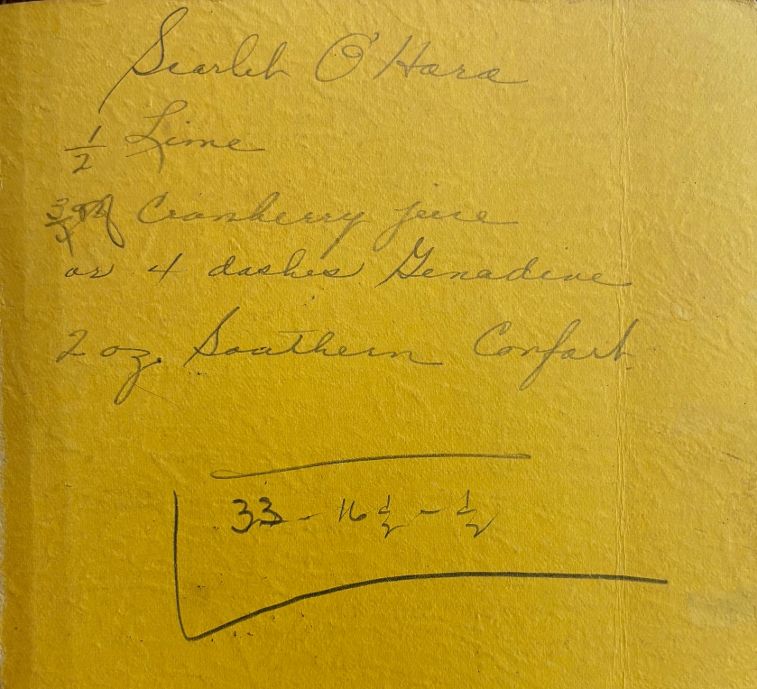 Scarlett O'Hara
1/2 Lime
3/4 Cranberry juice
or 4 dashes Genadine
2 oz. Southern Comfort
33 - 16 1/2 - 1/2